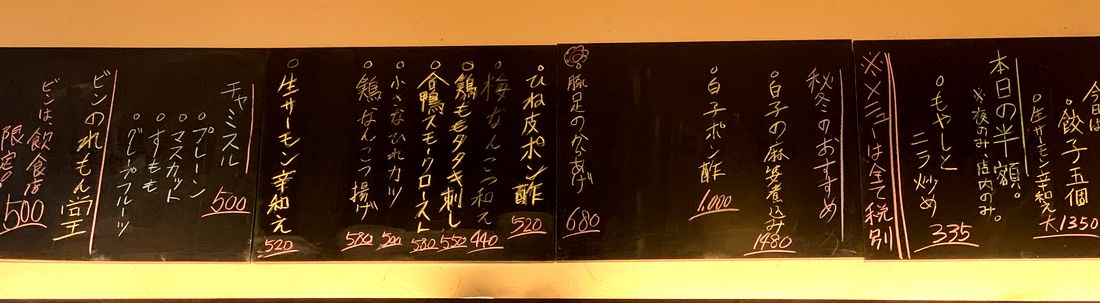 今日は
餃子五個
生サーモン辛和え
大1350
本日の半額。
※夜のみ、店内のみ。
もやしと
ニラ炒め
335
※メニューは全て税別
秋冬のおすすめ
白子の麻婆煮込み
1480
白子ポン酢
1.000
豚足のから揚げ
680
ひね皮ポン酢
520
梅なんこつ和え
440
鶏ももタタキ刺し
550
合鴨スモークロースト
580
小さなひれカツ
500
鶏なんこつ揚げ
580
生サーモン辛和え
520
チャミスル
500
プレーン
マスカット
すもも
グレープフルーツ
ビンのれもん堂
ビンは、飲食店
限定!
500